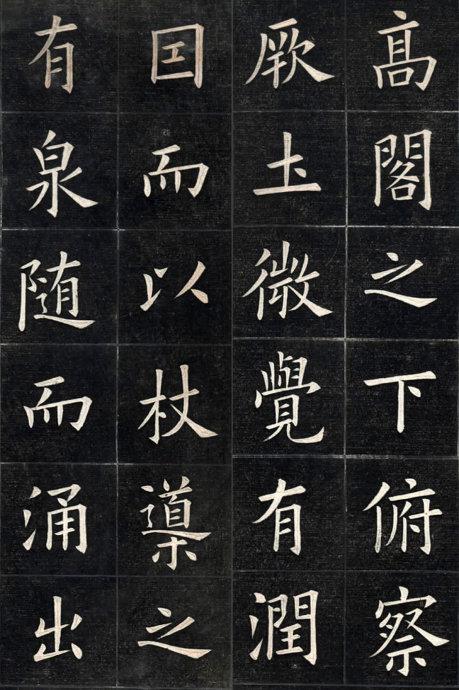 髙閣之下俯察
厥圡微覺有潤
因而以杖導之
有泉随而涌出